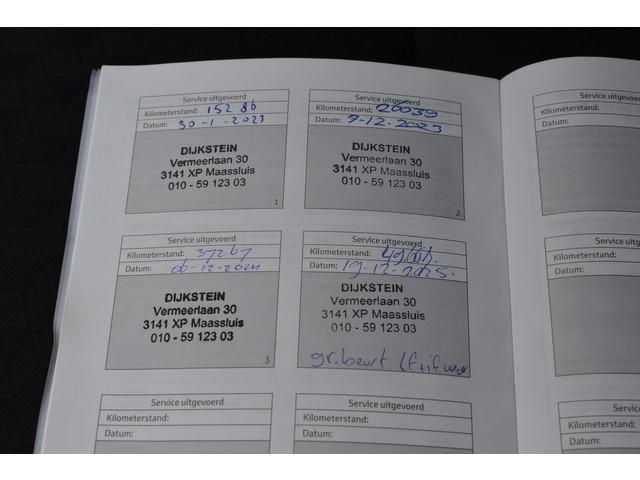 Service uitgevoerd
Kilometerstand: 15286
Datum: 30-1-2023
DIJKSTEIN
Vermeerlaan 30
3141 XP Maassluis
010 - 59 123 03
1
Service uitgevoerd
Kilometerstand: 26039
Datum: 7-12-2023
DIJKSTEIN
Vermeerlaan 30
3141 XP Maassluis
010 - 59 123 03
2
Service uitgevoerd
Kilometerstand: 37267
Datum: 06-12-2024
DIJKSTEIN
Vermeerlaan 30
3141 XP Maassluis
010 - 59 123 03
3
Service uitgevoerd
Kilometerstand:
Datum: 19-12-2025.
DIJKSTEIN
Vermeerlaan 30
3141 XP Maassluis
010 - 59 123 03
gr.beurt
Service uitgevoerd
Kilometerstand:
Datum:
Service uitgevoerd
Kilometerstand:
Datum:
Se
Kilometerstand:
Datum:
Service
Kilometerstand:
Datum:
Servi
Kilometerstand:
Datum: